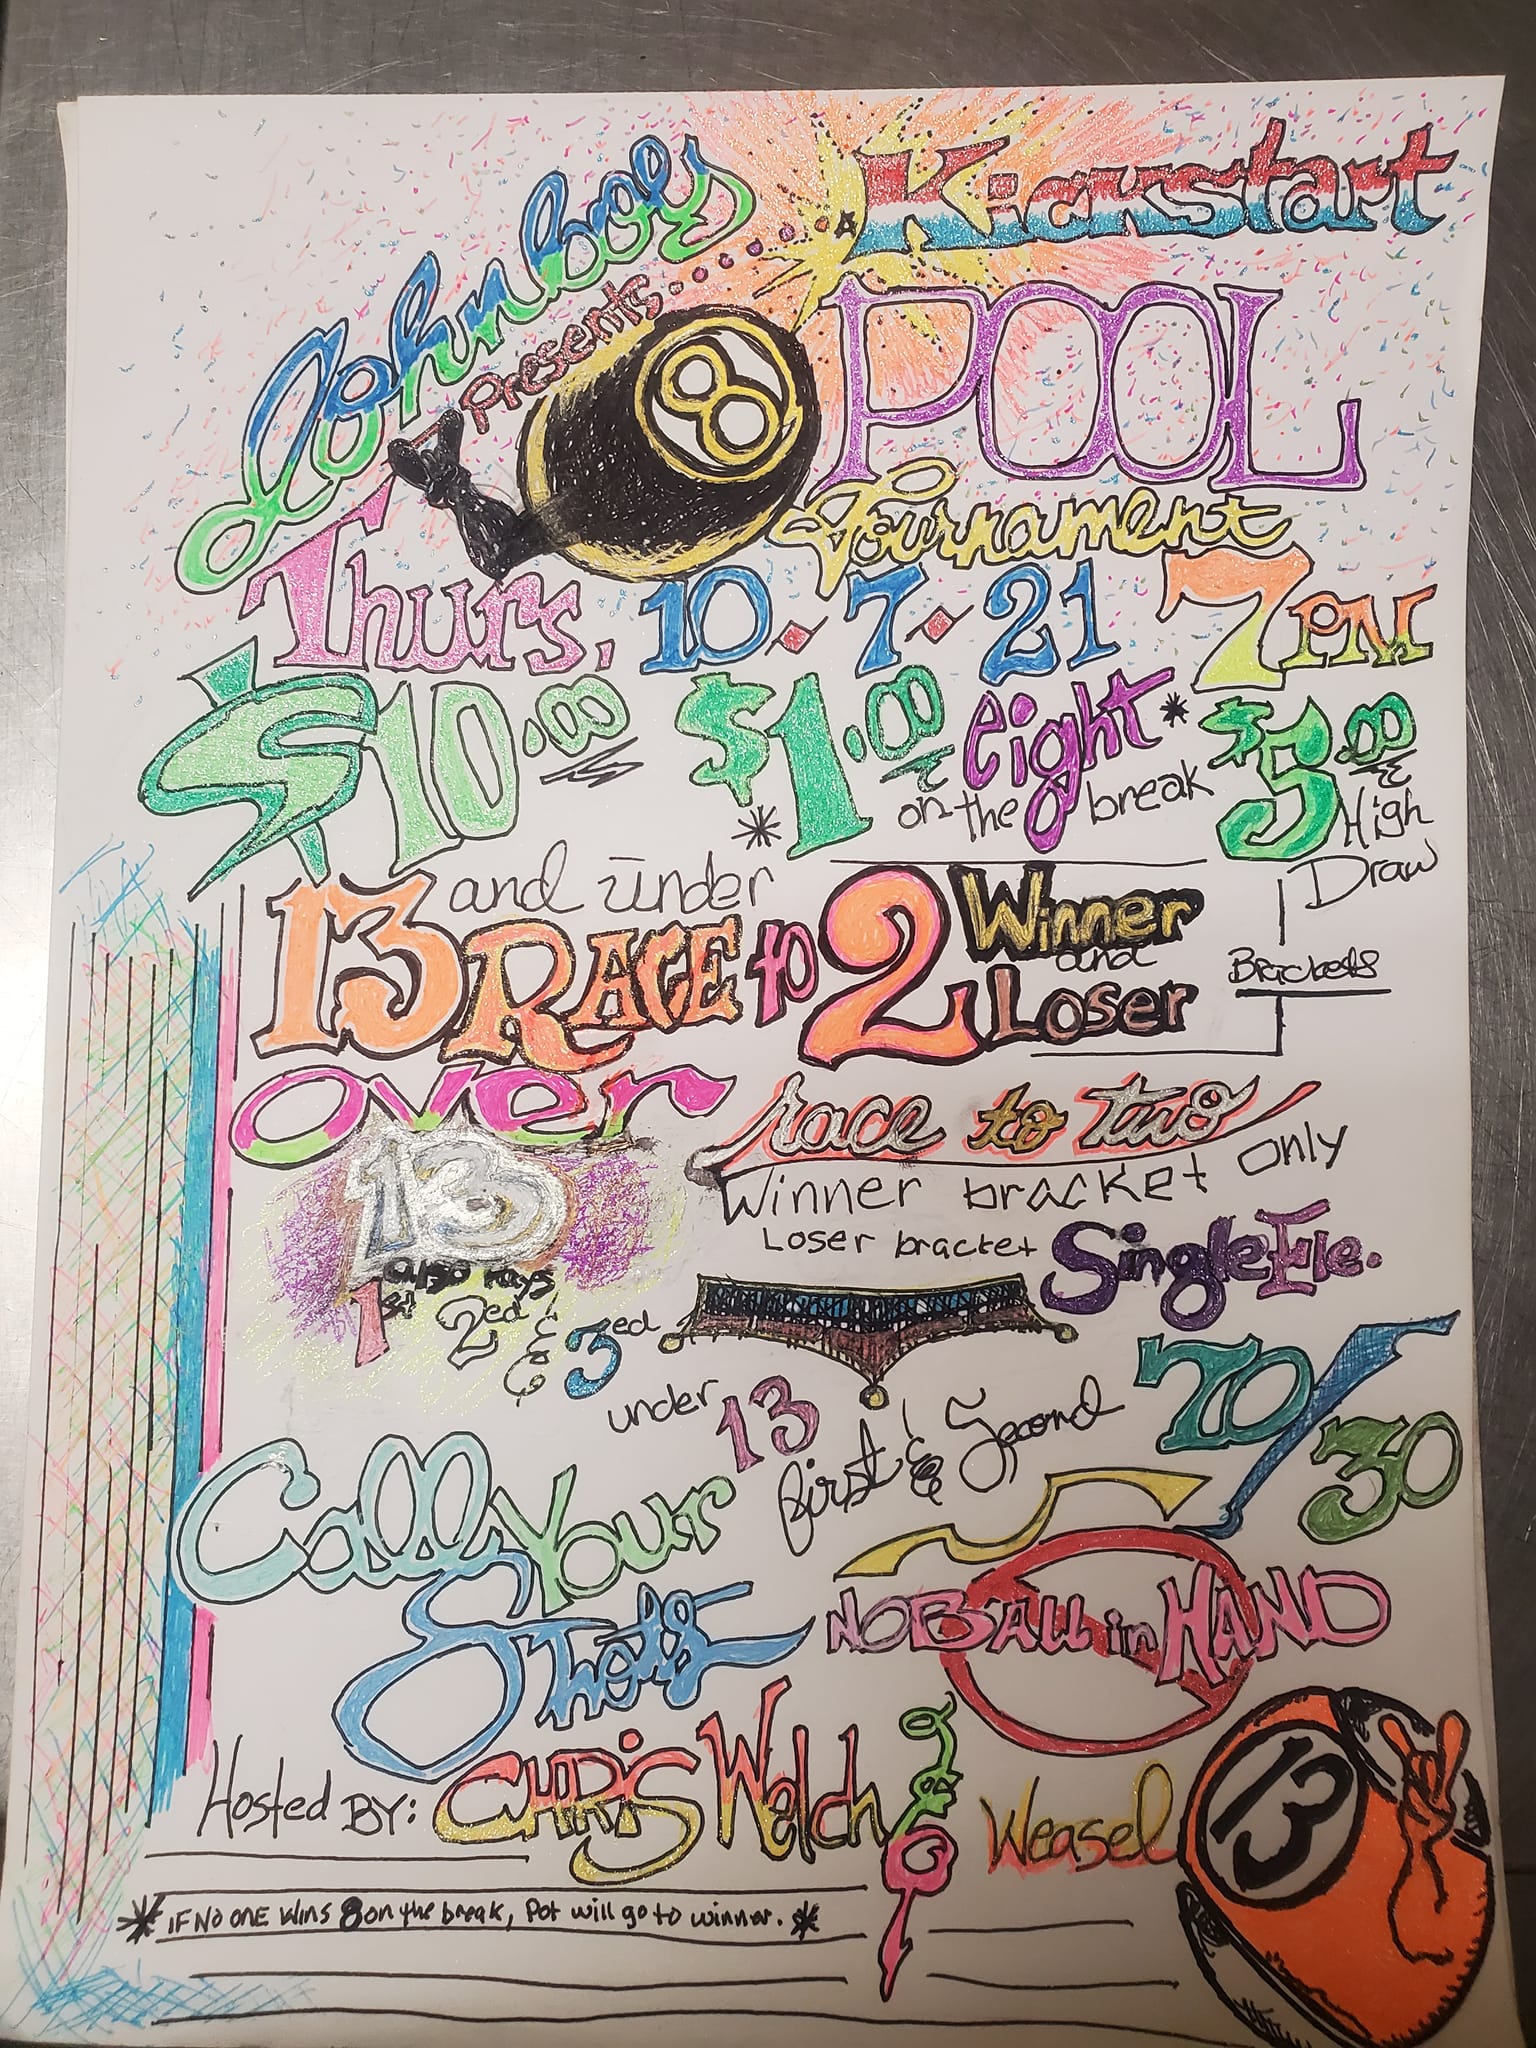 Johnboys
Presents.....
Kickstart
8
POOL
Tournament
Thurs, 10·7·21 7PM
$10.00 *$1.00 eight* $5.00
on the break High
Draw
13 and under
RACE to 2 Winner
and
Loser
Brackets
over
13
race to two
Winner bracket only
Loser bracket Single Ele.
also pays
1st 2ed & 3ed
under 13 first & Second 70/30
Call Your
Shots
NO BALL in HAND
Hosted BY: CHRiS Welch & Weasel
13
* IF NO ONE WINS 8 on the break, Pot will go to winner. *